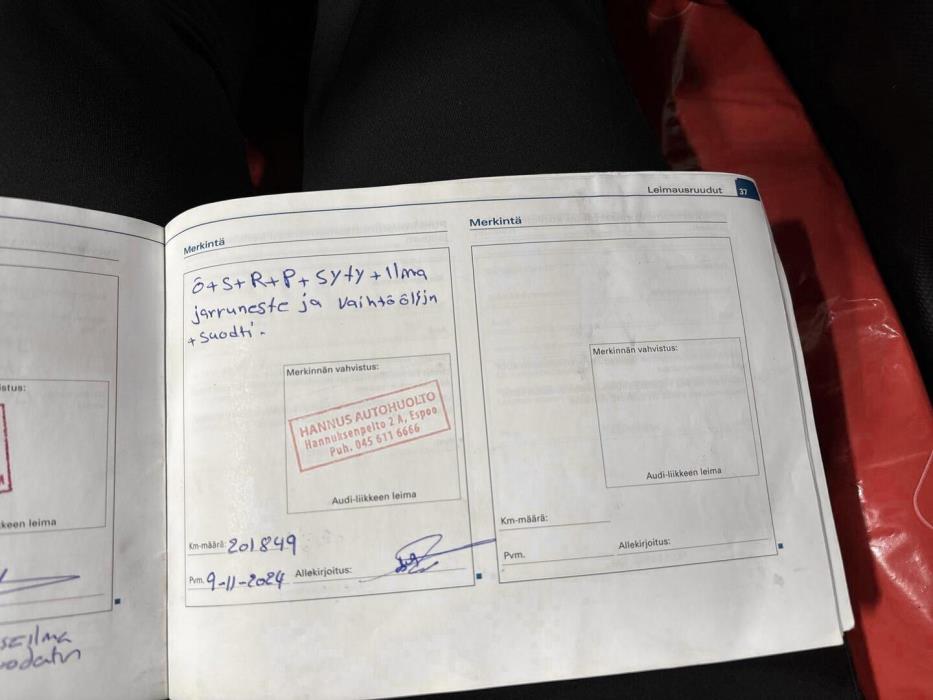 Leimausruudut 37
stus:
keen leima
Merkintä
Ö+S+R+P+Syty+Ilma
jarruneste ja Vaihtö öljn
+suodti.
Merkinnän vahvistus:
HANNUS AUTOHUOLTO
Hannuksenpelto 2 A, Espoo
Puh. 045 611 6666
Audi-liikkeen leima
Km-määrä: 201849
Pvm. 9-11-2024 Allekirjoitus:
Merkintä
Merkinnän vahvistus:
Audi-liikkeen leima
Km-määrä:
Pvm. Allekirjoitus: